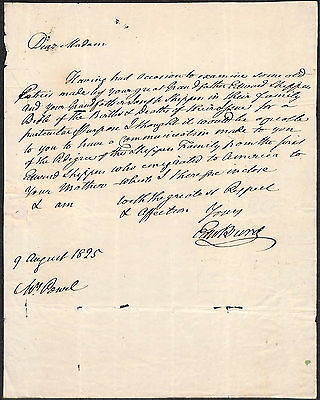 Dear Madam
Having had occasion to examine some old
Entries made by your great Grandfather Edward Shippen
and your Grandfather Joseph Shippen in their Family
Bible of the Births & Deaths of their for a
particular Purpose I thought it would be agreeable
to you to have a Communication made to you
of the Pedigree of the Shippen Family from the first
Edward Shippen who emigrated to America to
Your Mother which I therefore inclose
I am with the greatest Respect
& Affection Yours
Edw Burd
9 August 1825
Mrs Powel